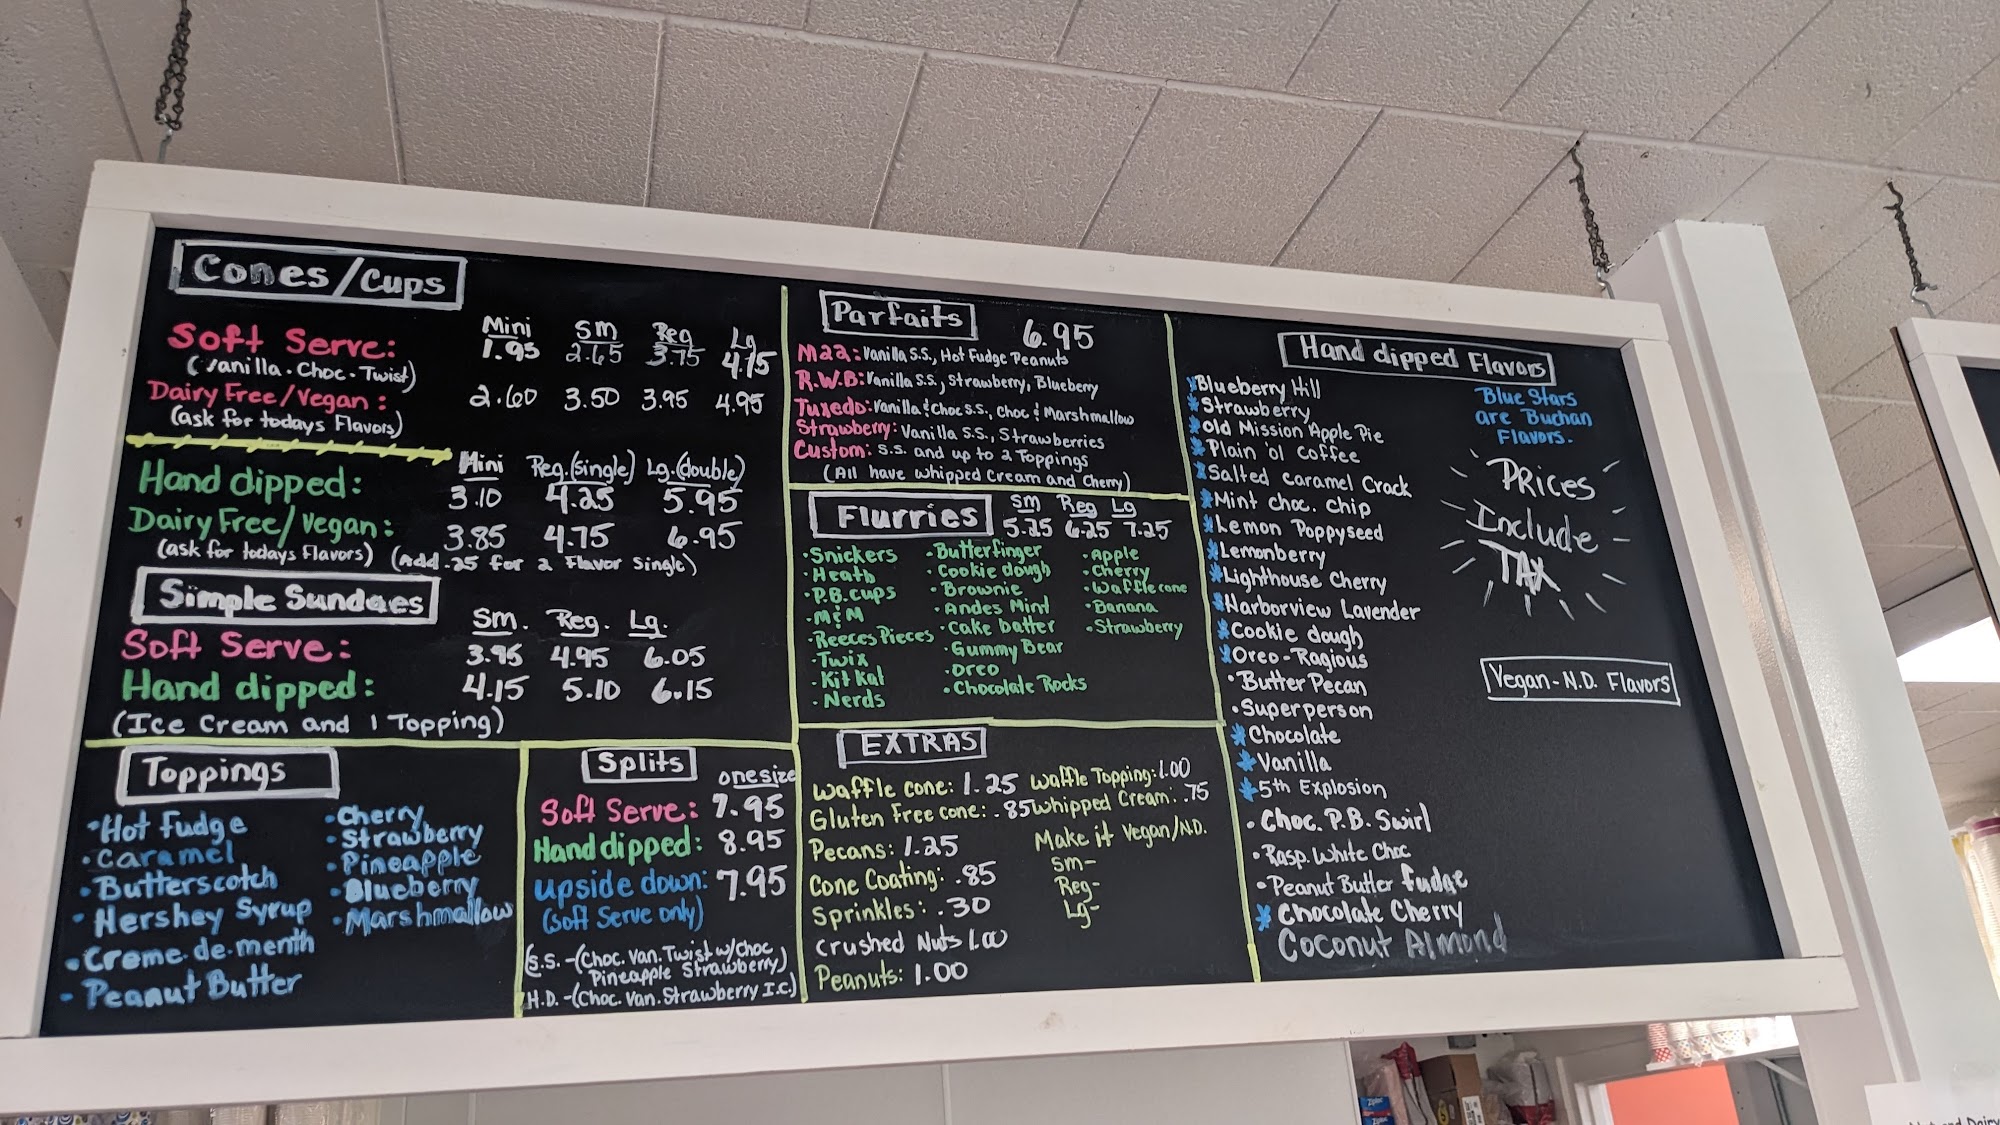 Cones/Cups
Mini Sm Reg Lg
Soft Serve: 1.95 2.65 3.75 4.15
(Vanilla. Choc. Twist)
Dairy Free/Vegan: 2.60 3.50 3.95 4.95
(ask for todays Flavors)
Mini Reg.(single) Lg.(double)
Hand dipped: 3.10 4.25 5.95
Dairy Free/Vegan: 3.85 4.75 6.95
(ask for todays Flavors) (Add .25 for 2 Flavor Single)
Simple Sundaes
Sm. Reg. Lg.
Soft Serve: 3.95 4.95 6.05
Hand dipped: 4.15 5.10 6.15
(Ice Cream and 1 Topping)
Toppings
• Hot Fudge
• Caramel
• Butterscotch
• Hershey Syrup
• Creme-de-menth
• Peanut Butter
• Cherry
• Strawberry
• Pineapple
• Blueberry
• Marshmallow
Splits
one size
Soft Serve: 7.95
Hand dipped: 8.95
upside down: 7.95
(Soft Serve only)
(S.S. -(Choc. Van. Twist w/Choc
Pineapple Strawberry)
H.D. -(Choc. Van. Strawberry I.C.)
Parfaits 6.95
M22: Vanilla S.S., Hot Fudge Peanuts
R.W.B: Vanilla S.S., Strawberry, Blueberry
Tuxedo: Vanilla & Choc S.S., Choc & Marshmallow
Strawberry: Vanilla S.S., Strawberries
Custom: S.S. and up to 2 Toppings
(All have whipped Cream and Cherry)
Flurries
Sm Reg Lg
5.25 6.25 7.25
• Snickers
• Heath
• P.B. cups
• M&M
• Reeces Pieces
• Twix
• Kit Kat
• Nerds
• Butterfinger
• Cookie dough
• Brownie
• Andes Mint
• Cake batter
• Gummy Bear
• Oreo
• Chocolate Rocks
• Apple
• Cherry
• Waffle cone
• Banana
• Strawberry
EXTRAS
Waffle cone: 1.25
Gluten Free cone: .85
Pecans: 1.25
Cone Coating: .85
Sprinkles: .30
Crushed Nuts 1.00
Peanuts: 1.00
Waffle Topping: 1.00
Whipped Cream: .75
Make it Vegan/N.D.
Sm-
Reg-
Lg-
Hand dipped Flavors
Blueberry Hill
Strawberry
Old Mission Apple Pie
Plain 'ol Coffee
Salted Caramel Crack
Mint choc. chip
Lemon Poppyseed
Lemonberry
Lighthouse Cherry
Harborview Lavender
Cookie dough
Oreo-Ragious
• Butter Pecan
• Superperson
Chocolate
Vanilla
5th Explosion
• Choc. P.B. Swirl
• Rasp. White Choc
• Peanut Butter Fudge
Chocolate Cherry
Coconut Almond
Blue Stars
are Buchan
Flavors.
Prices
Include
TAX
Vegan-N.D. Flavors